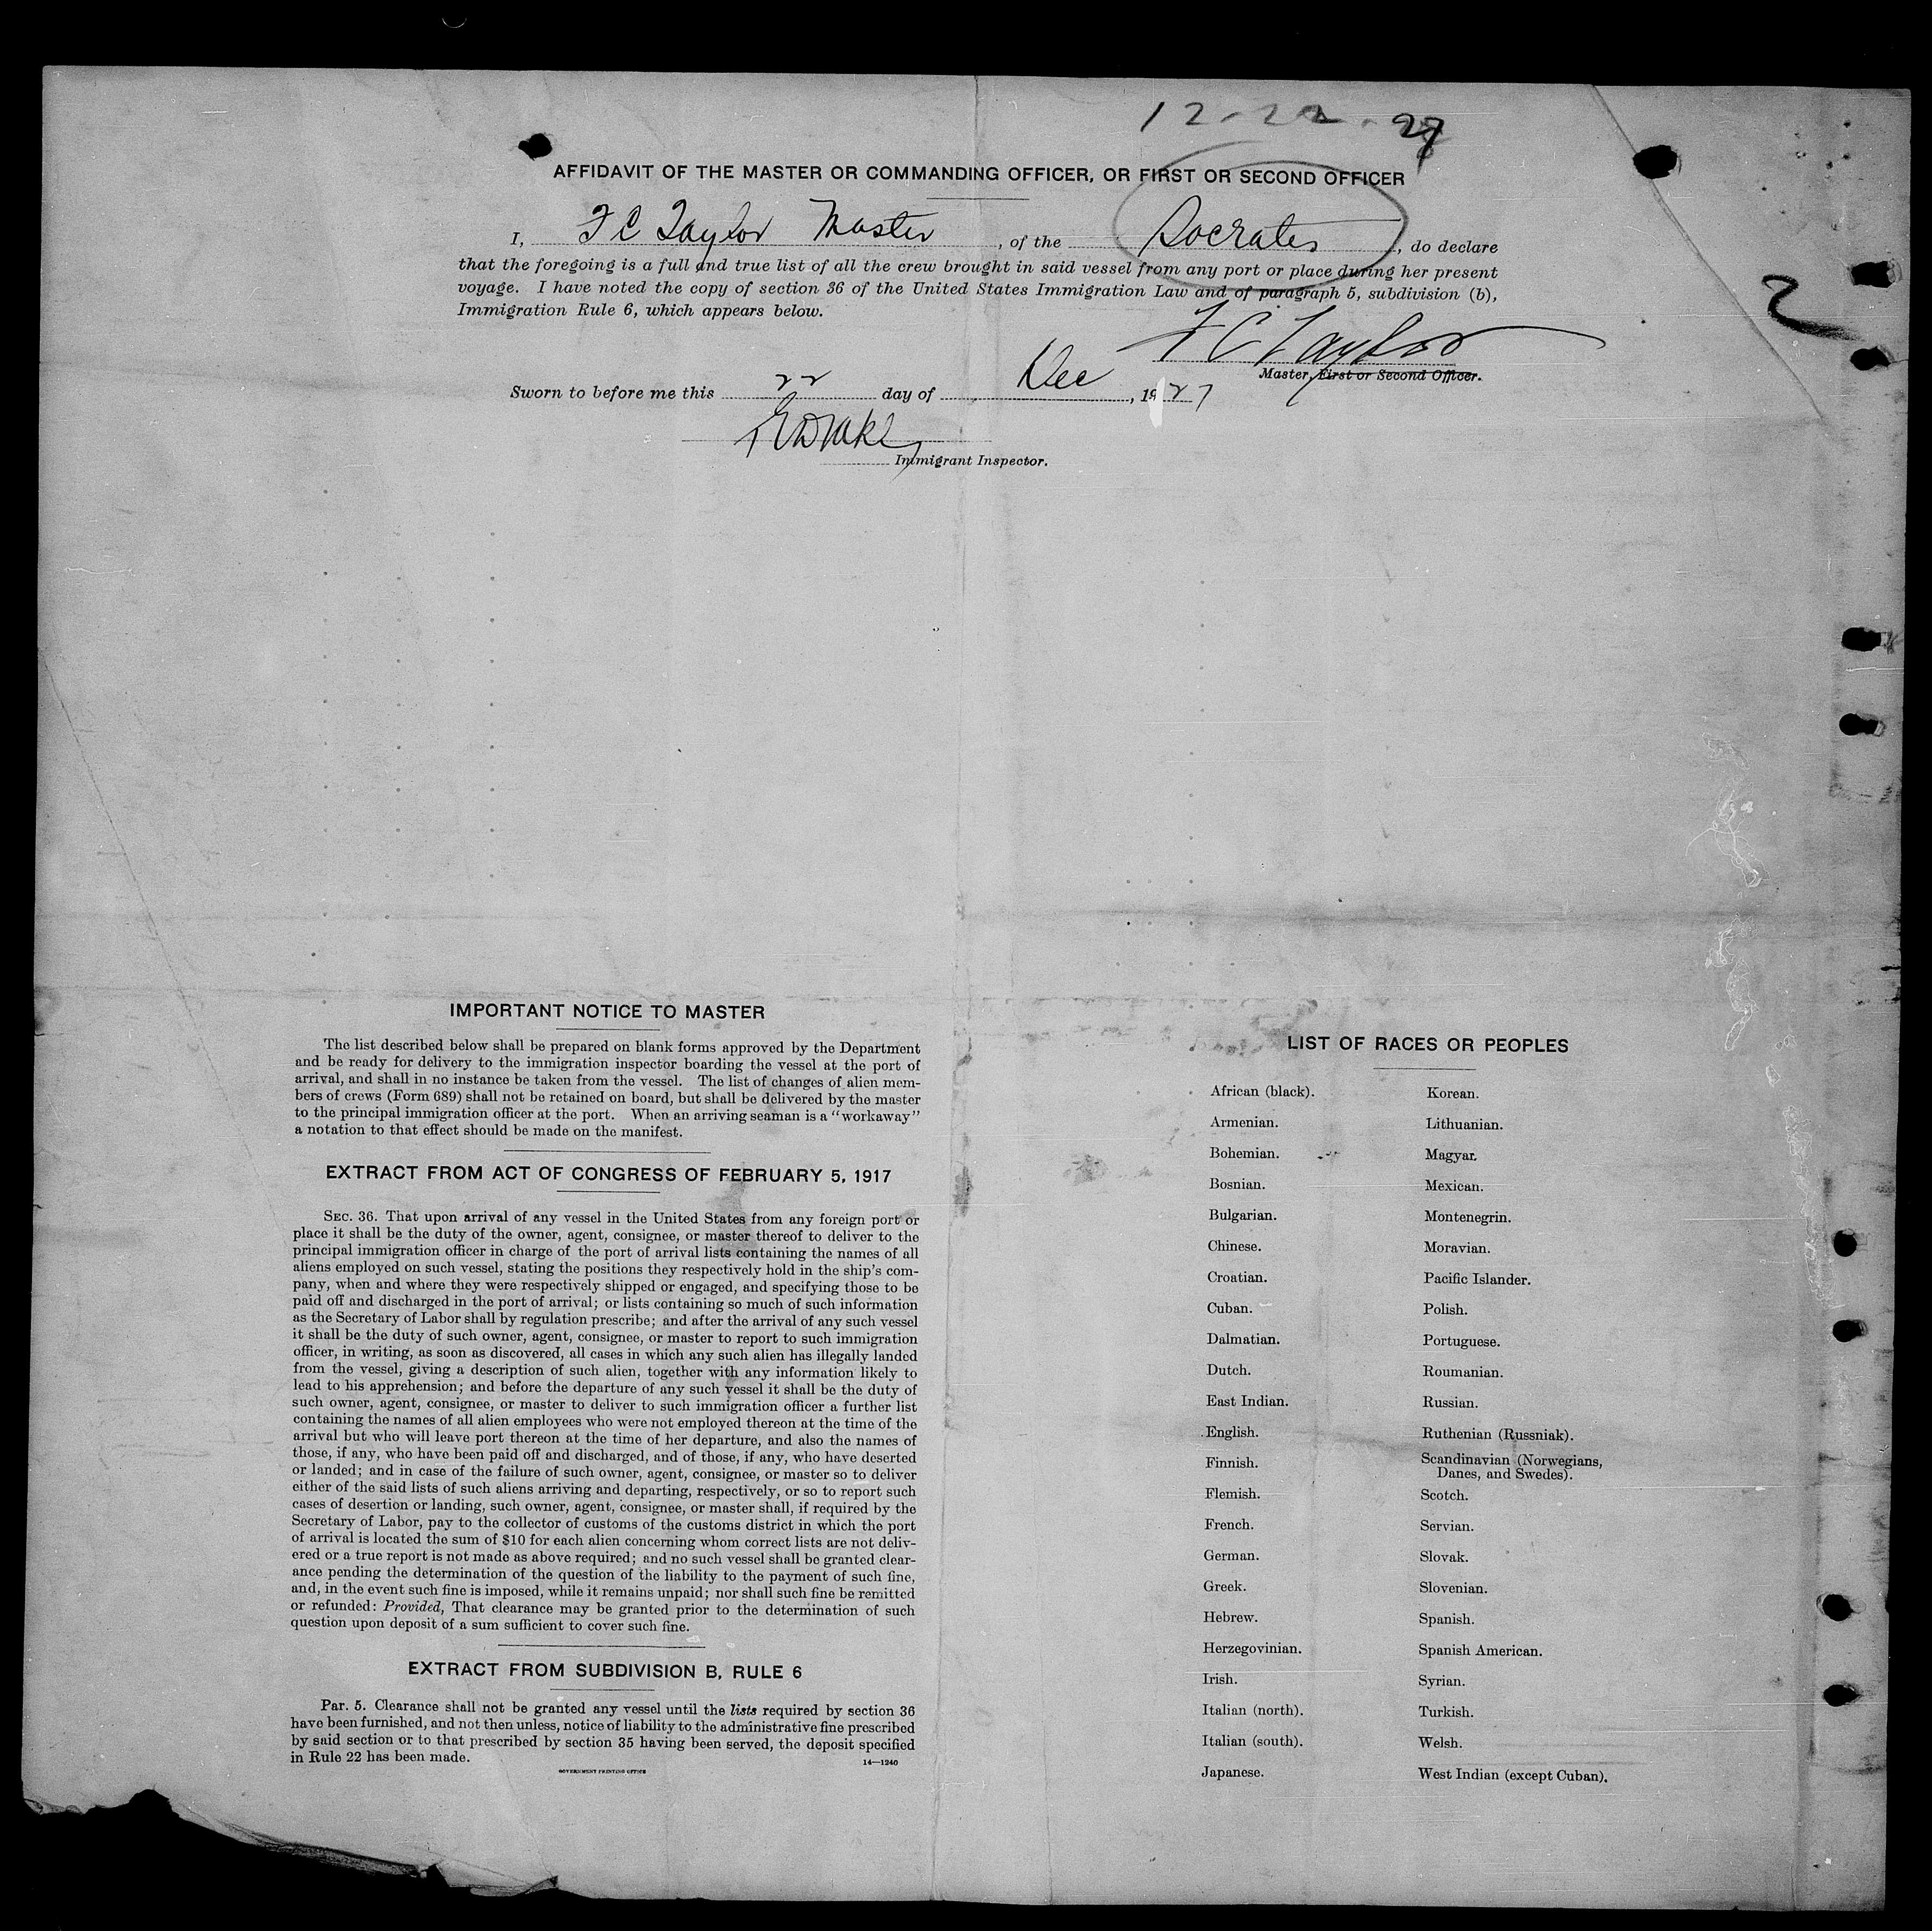 12-22-27
AFFIDAVIT OF THE MASTER OR COMMANDING OFFICER, OR FIRST OR SECOND OFFICER
I, F C Taylor Master, of the Socrates, do declare
that the foregoing is a full and true list of all the crew brought in said vessel from any port or place during her present
voyage. I have noted the copy of section 36 of the United States Immigration Law and of paragraph 5, subdivision (b),
Immigration Rule 6, which appears below.
2
F C Taylor
Master, First or Second Officer.
Sworn to before me this 22 day of Dec, 1927
Immigrant Inspector.
IMPORTANT NOTICE TO MASTER
The list described below shall be prepared on blank forms approved by the Department
and be ready for delivery to the immigration inspector boarding the vessel at the port of
arrival, and shall in no instance be taken from the vessel. The list of changes of alien mem-
bers of crews (Form 689) shall not be retained on board, but shall be delivered by the master
to the principal immigration officer at the port. When an arriving seaman is a "workaway"
a notation to that effect should be made on the manifest.
EXTRACT FROM ACT OF CONGRESS OF FEBRUARY 5, 1917
SEC. 36. That upon arrival of any vessel in the United States from any foreign port or
place it shall be the duty of the owner, agent, consignee, or master thereof to deliver to the
principal immigration officer in charge of the port of arrival lists containing the names of all
aliens employed on such vessel, stating the positions they respectively hold in the ship's com-
pany, when and where they were respectively shipped or engaged, and specifying those to be
paid off and discharged in the port of arrival; or lists containing so much of such information
as the Secretary of Labor shall by regulation prescribe; and after the arrival of any such vessel
it shall be the duty of such owner, agent, consignee, or master to report to such immigration
officer, in writing, as soon as discovered, all cases in which any such alien has illegally landed
from the vessel, giving a description of such alien, together with any information likely to
lead to his apprehension; and before the departure of any such vessel it shall be the duty of
such owner, agent, consignee, or master to deliver to such immigration officer a further list
containing the names of all alien employees who were not employed thereon at the time of the
arrival but who will leave port thereon at the time of her departure, and also the names of
those, if any, who have been paid off and discharged, and of those, if any, who have deserted
or landed; and in case of the failure of such owner, agent, consignee, or master so to deliver
either of the said lists of such aliens arriving and departing, respectively, or so to report such
cases of desertion or landing, such owner, agent, consignee, or master shall, if required by the
Secretary of Labor, pay to the collector of customs of the customs district in which the port
of arrival is located the sum of $10 for each alien concerning whom correct lists are not deliv-
ered or a true report is not made as above required; and no such vessel shall be granted clear-
ance pending the determination of the question of the liability to the payment of such fine,
and, in the event such fine is imposed, while it remains unpaid; nor shall such fine be remitted
or refunded: Provided, That clearance may be granted prior to the determination of such
question upon deposit of a sum sufficient to cover such fine.
EXTRACT FROM SUBDIVISION B, RULE 6
Par. 5. Clearance shall not be granted any vessel until the lists required by section 36
have been furnished, and not then unless, notice of liability to the administrative fine prescribed
by said section or to that prescribed by section 35 having been served, the deposit specified
in Rule 22 has been made.
14—1240
GOVERNMENT PRINTING OFFICE
LIST OF RACES OR PEOPLES
African (black).
Armenian.
Bohemian.
Bosnian.
Bulgarian.
Chinese.
Croatian.
Cuban.
Dalmatian.
Dutch.
East Indian.
English.
Finnish.
Flemish.
French.
German.
Greek.
Hebrew.
Herzegovinian.
Irish.
Italian (north).
Italian (south).
Japanese.
Korean.
Lithuanian.
Magyar.
Mexican.
Montenegrin.
Moravian.
Pacific Islander.
Polish.
Portuguese.
Roumanian.
Russian.
Ruthenian (Russniak).
Scandinavian (Norwegians,
Danes, and Swedes).
Scotch.
Servian.
Slovak.
Slovenian.
Spanish.
Spanish American.
Syrian.
Turkish.
Welsh.
West Indian (except Cuban).